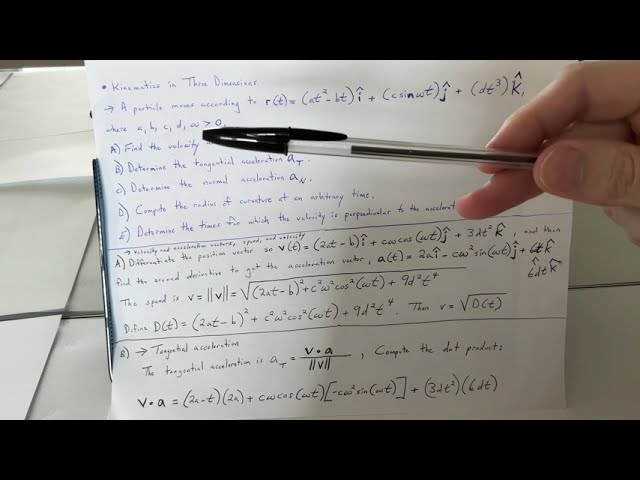 • Kinematics in Three Dimensions
→ A particle moves according to r(t) = (at² - bt)î + (c sin ωt)ĵ + (dt³)k̂,
where a, b, c, d, ω > 0.
A) Find the velocity
B) Determine the tangential acceleration a_T.
C) Determine the normal acceleration a_N.
D) Compute the radius of curvature at an arbitrary time.
E) Determine the times for which the velocity is perpendicular to the accelerat
→ velocity and acceleration vectors, speed, and velocity
A) Differentiate the position vector so v(t) = (2at - b)î + cω cos(ωt)ĵ + 3dt²k̂, and then
find the second derivative to get the acceleration vector, a(t) = 2aî - cω² sin(ωt)ĵ +
6dtk̂
The speed is v = ||v|| = √((2at - b)² + c²ω²cos²(ωt) + 9d²t⁴
Define D(t) = (2at - b)² + c²ω²cos²(ωt) + 9d²t⁴. Then v = √D(t)
B) → Tangential acceleration
The tangential acceleration is a_T = v • a / ||v||, Compute the dot product:
v • a = (2a-t)(2a) + cω cos(ωt)[-cω² sin(ωt)] + (3dt²)(6dt)